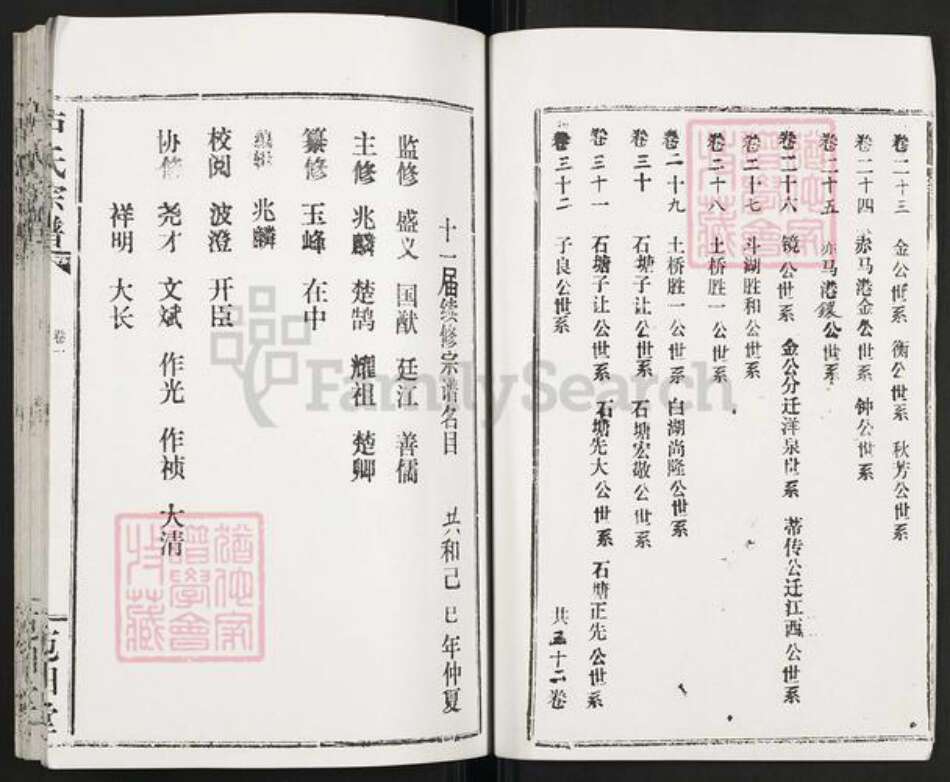 卷二十三 金公世系 衡公世系 秋芳公世系
卷二十四 赤马港金公世系 钟公世系
卷二十五 赤马港镁公世系
卷二十六 镜公世系 金公分迁洋泉世系 蒂传公迁江西公世系
卷二十七 斗湖胜和公世系
卷二十八 土桥胜一公世系
卷二十九 土桥胜一公世系 白湖尚隆公世系
卷三十 石塘子让公世系 石塘宏敬公世系
卷三十一 石塘子让公世系 石塘先大公世系 石塘正先公世系
卷三十二 子良公世系 共三十二卷
十一届续修宗谱名目 共和己巳年仲夏
监修 盛义 国猷 廷江 善儒
主修 兆麟 楚鹄 耀祖 楚卿
纂修 玉峰 在中
编辑 兆麟
校阅 波澄 开臣
协修 尧才 文斌 作光 作祯 大清
祥明 大长
氏宗谱 卷一
FamilySearch